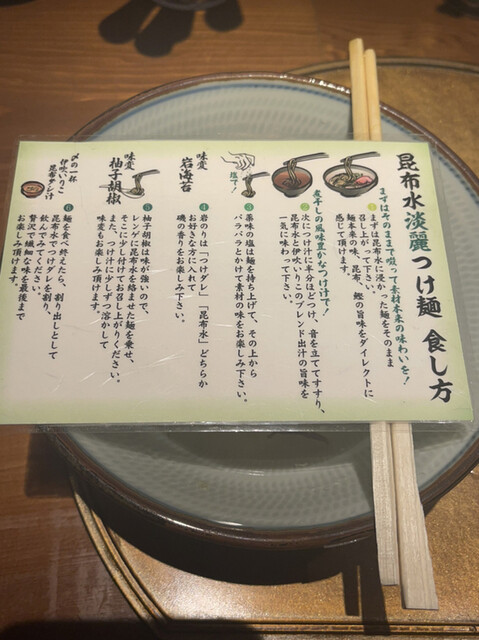 昆布水淡麗つけ麺 食し方
まずはそのままで啜って素材本来の味わいを！
1 まずは昆布水に浸かった麺をそのまま
召し上がって下さい。
麺本来の味、昆布、鰹の旨味をダイレクトに
感じて頂けます。
煮干しの風味豊かなつけ汁で！
2 次につけ汁に半分ほどつけ、音を立ててすすり、
昆布水と伊吹いりこのブレンド出汁の旨味を
一気に味わって下さい。
塩で！
3 薬味の塩は麺を持ち上げて、その上から
パラパラとかけて素材の味をお楽しみ下さい。
味変
岩海苔
4 岩のりは「つけダレ」「昆布水」どちらか
お好きな方に入れて
磯の香りをお楽しみ下さい。
味変
柚子胡椒
5 柚子胡椒は味が強いので、
レンゲに昆布水を絡ませた麺を乗せ、
そこに少し付けてお召し上がりください。
また、つけ汁に少しずつ溶かして
味変もお楽しみ頂けます。
〆の一杯
伊吹いりこ
昆布ダシ汁
6 麺を食べ終えたら、割り出しとして
昆布水でつけダレを割り、
飲んでみてください。
贅沢で繊細な味を最後まで
お楽しみ頂けます。